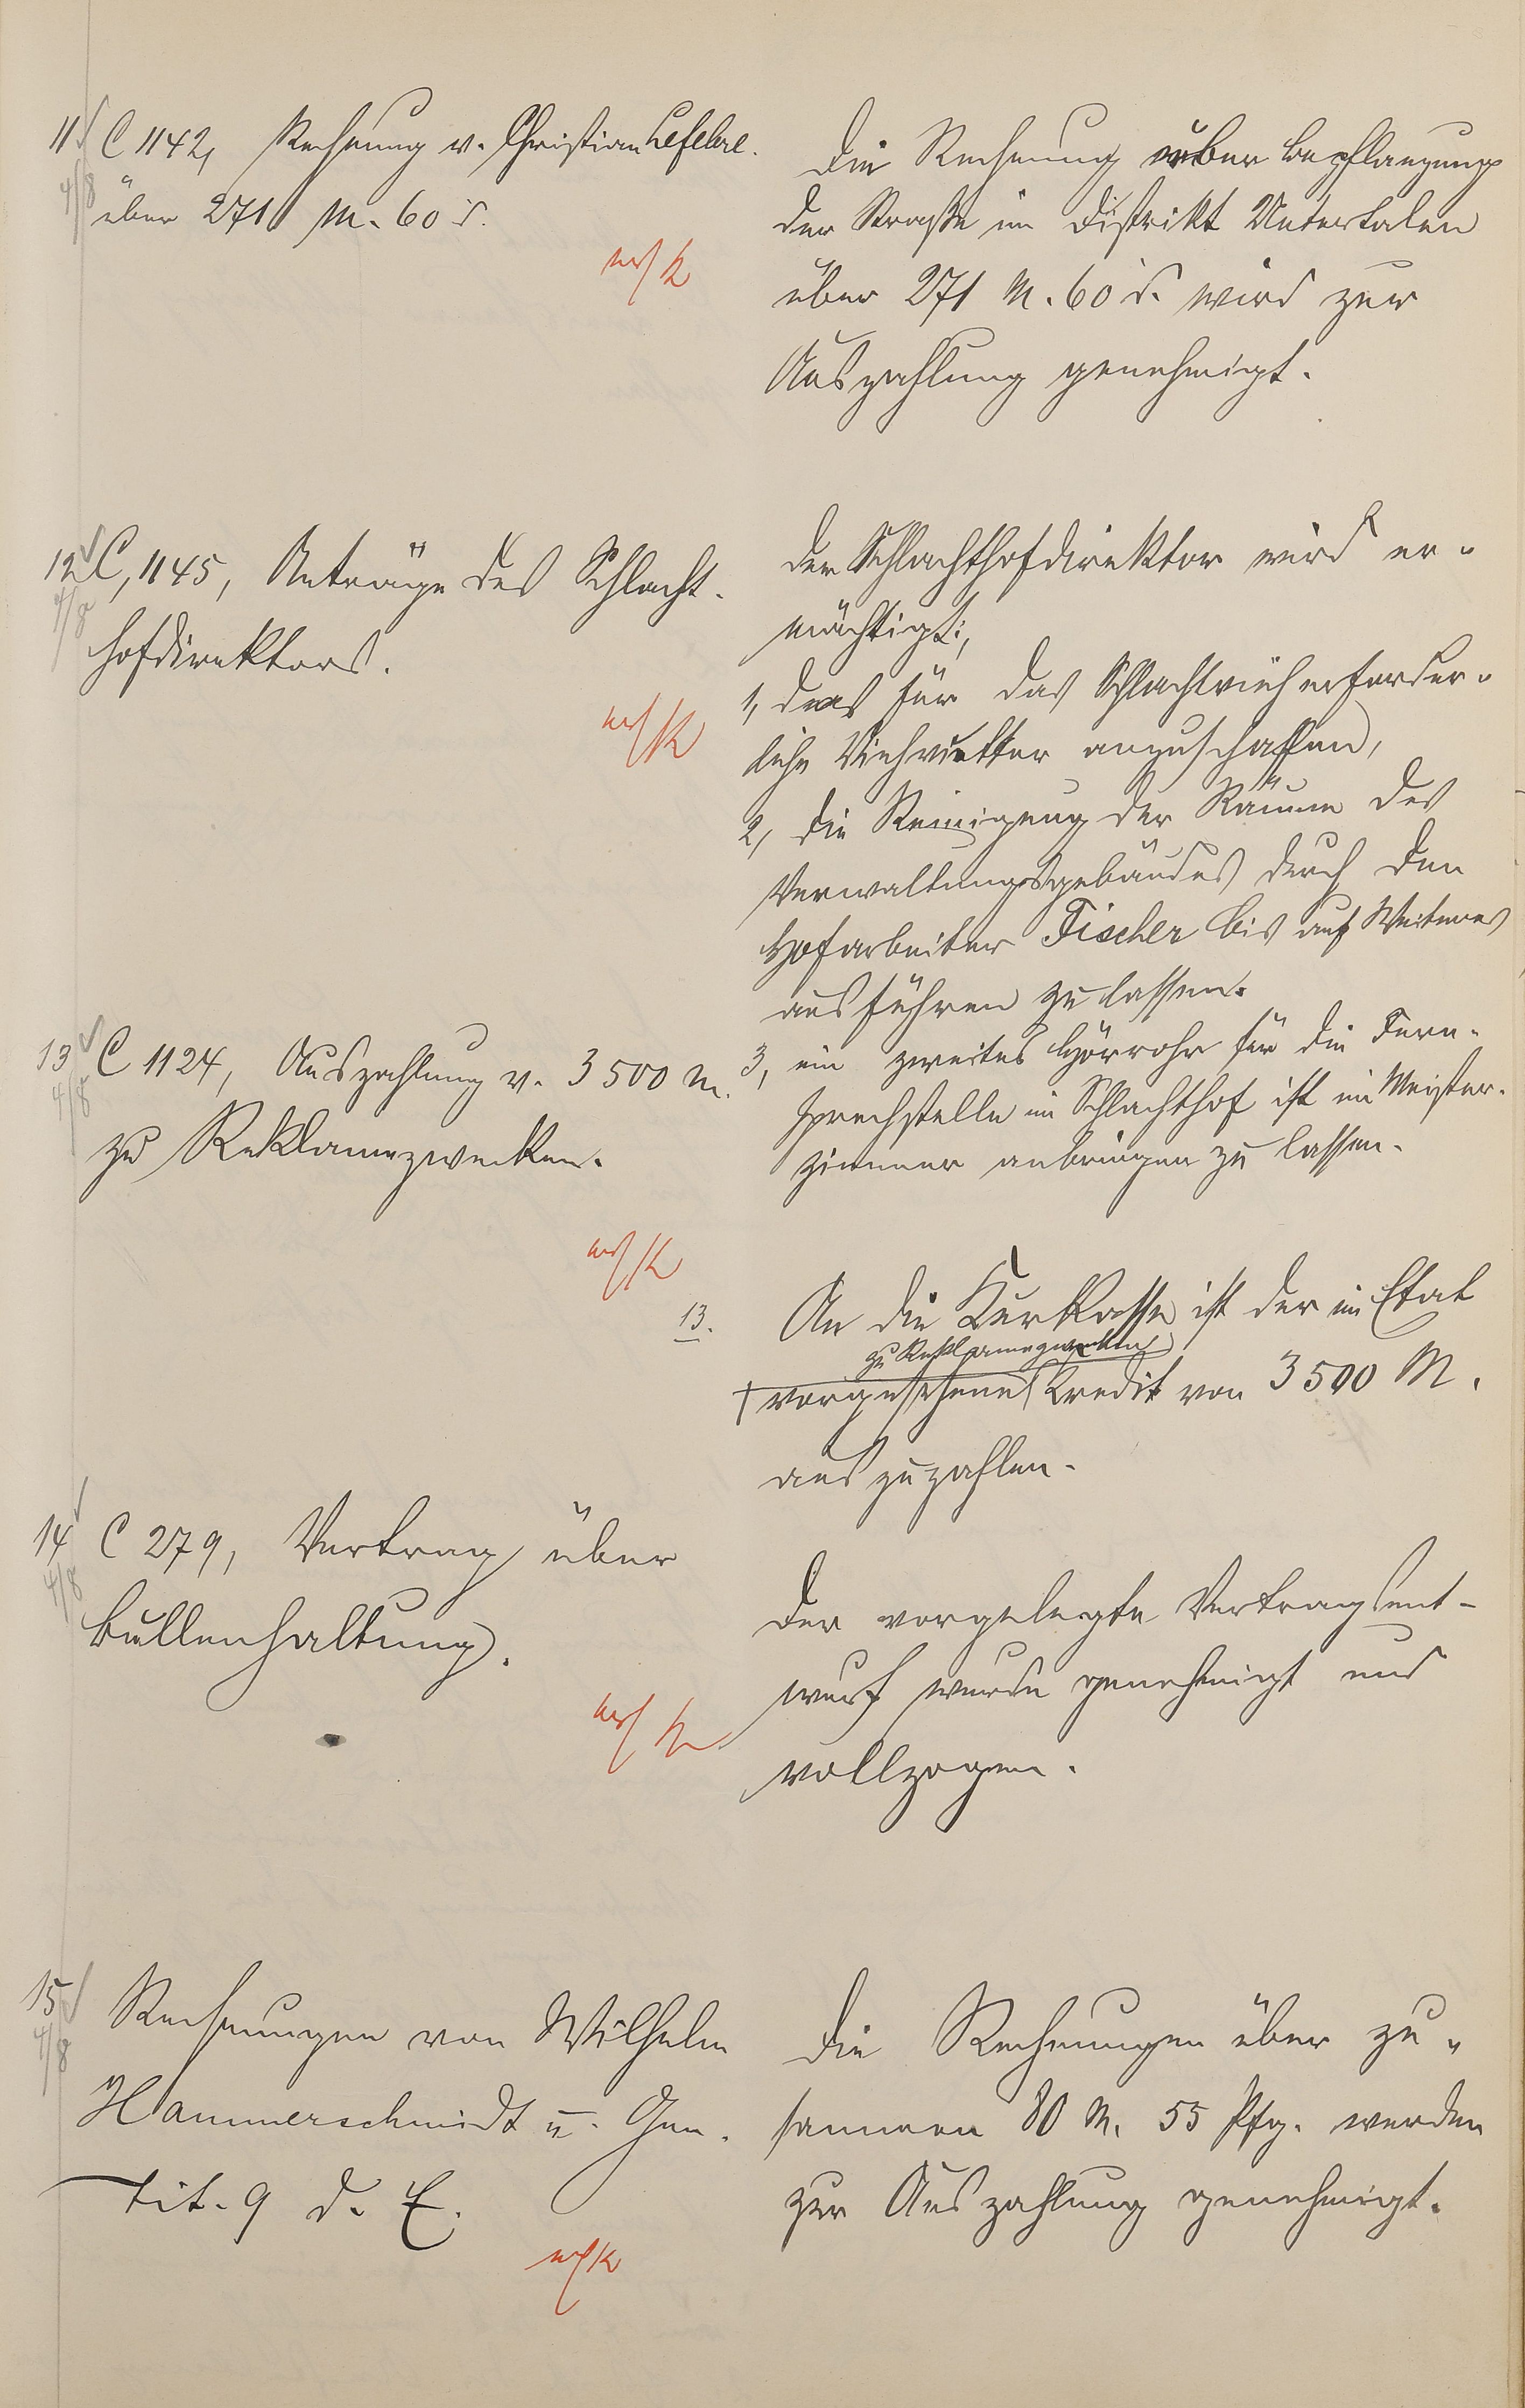 11 C 1142, Rechnung v. Christian Lefebre.
4/8
über 271 M. 60 ₰.
Die Rechnung über Bepflanzung
der Straße im Distrikt Untertalen
über 271 M. 60 ₰. wird zur
Auszahlung genehmigt.
12 C, 1145, Anträge des Schlacht-
4/8
hofdirektors.
Der Schlachthofdirektor wird er-
mächtigt:
1, das für das Schlachtvieh erforder-
liche Viehfutter anzuschaffen,
2, die Reinigung der Räume des
Verwaltungsgebäudes durch den
Hofarbeiter Fischer bis auf Weiteres
ausführen zu lassen.
3, ein zweites Hörrohr für die Fern-
sprechstelle im Schlachthof ist im Meister-
zimmer anbringen zu lassen.
13 C 1124, Auszahlung v. 3500 M.
4/8
zu Reklamezwecken.
13. An die Kurkasse ist der im Etat
zu Reklamezwecken
vorgesehene Kredit von 3500 M.
auszuzahlen.
14 C 279, Vertrag über
4/8
Bullenhaltung.
Der vorgelegte Vertragsent-
wurf wurde genehmigt und
vollzogen.
15 Rechnungen von Wilhelm
4/8
Hammerschmidt u. Gen.
Tit. 9 d. E.
Die Rechnungen über zu-
sammen 80 M. 55 Pfg. werden
zur Auszahlung genehmigt.